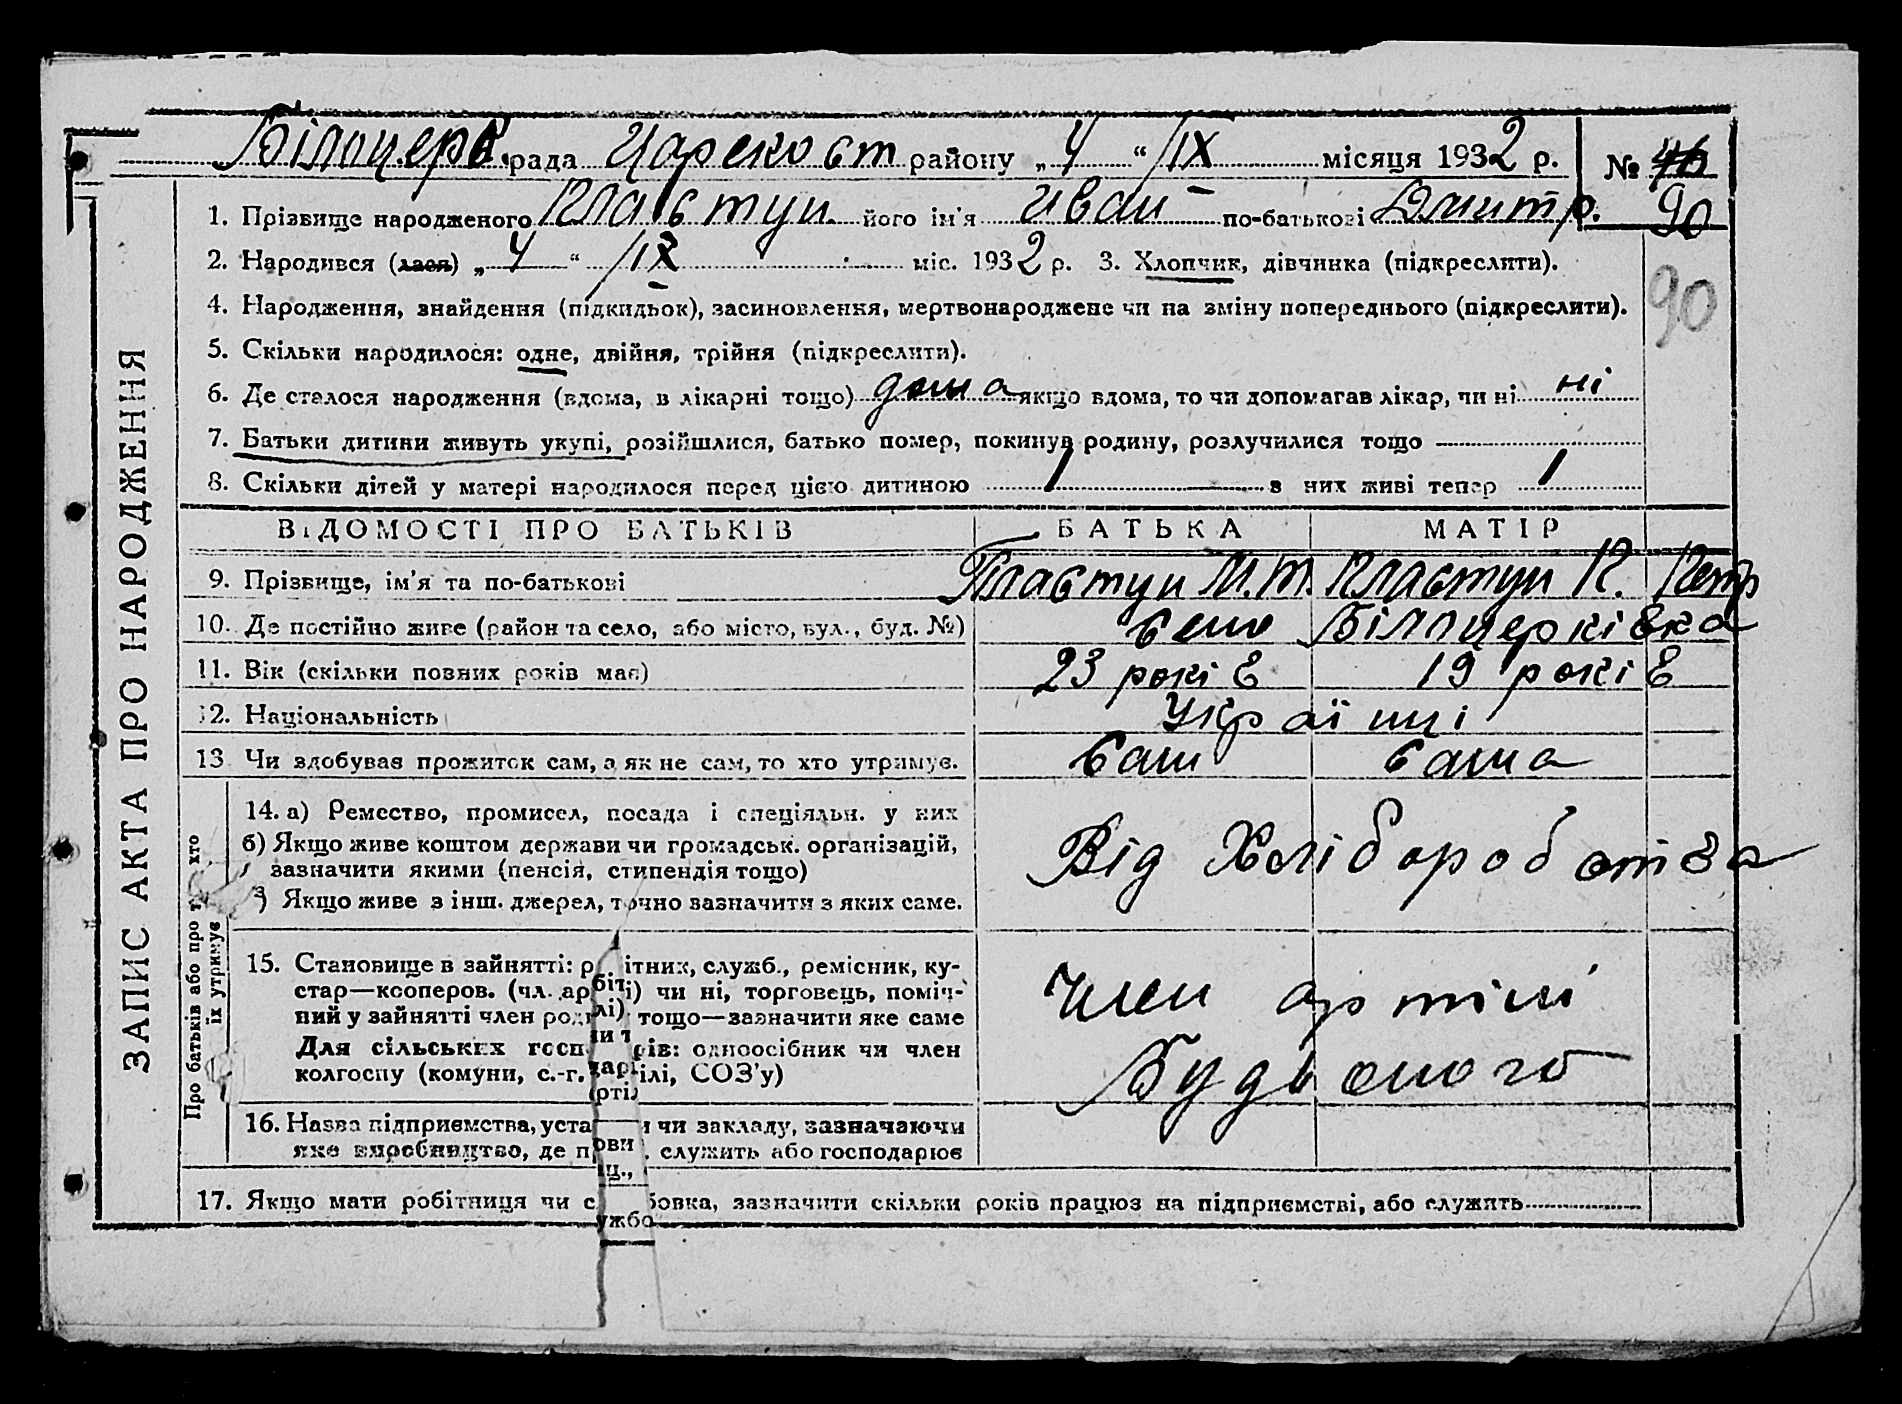 Білоцерк. рада Царекост району „4“ /IX місяця 1932 р. № 46
90
1. Прізвище народженого Пластун. його ім'я Иван по-батькові Дмитр.
2. Народився (лася) „4“ /IX міс. 1932 р. 3. Хлопчик, дівчинка (підкреслити).
90
4. Народження, знайдення (підкидьок), засиновлення, мертвонароджене чи на зміну попереднього (підкреслити).
5. Скільки народилося: одне, двійня, трійня (підкреслити).
6. Де сталося народження (вдома, в лікарні тощо) дома якщо вдома, то чи допомагав лікар, чи ні ні
7. Батьки дитини живуть укупі, розійшлися, батько помер, покинув родину, розлучилися тощо
8. Скільки дітей у матері народилося перед цією дитиною 1 з них живі тепер 1
ВІДОМОСТІ ПРО БАТЬКІВ БАТЬКА МАТІР
9. Прізвище, ім'я та по-батькові Пластун М.Т. Пластун П. Петр
10. Де постійно живе (район та село, або місто, вул., буд. №) село Білоцерківка
11. Вік (скільки повних років має) 23 років 19 років
12. Національність Українці
13 Чи здобував прожиток сам, а як не сам, то хто утримує. сам сама
14. а) Ремество, промисел, посада і спеціяльн. у них
б) Якщо живе коштом держави чи громадськ. організацій,
зазначити якими (пенсія, стипендія тощо)
) Якщо живе з інш. джерел, точно зазначити з яких саме.
Від Хліборобства
15. Становище в зайнятті: р ітник, служб., ремісник, ку-
стар—кооперов. (чл. ар і) чи ні, торговець, поміч-
ний у зайнятті член род тощо—зазначити яке саме
Для сільських госп рів: одноосібник чи член
колгоспу (комуни, с.-г. ілі, СОЗ'у)
Член артілі
Будьоного
16. Назва підприємства, уста и чи закладу, зазначаючи
яке виробництво, де п , служить або господарює
17. Якщо мати робітниця чи с бовка, зазначити скільки років працює на підприємстві, або служить
біт
лі)
ни т
дарі
рті
ови
ц.,
ужбо
ЗАПИС АКТА ПРО НАРОДЖЕННЯ
Про батьків або про т хто
їх утримує